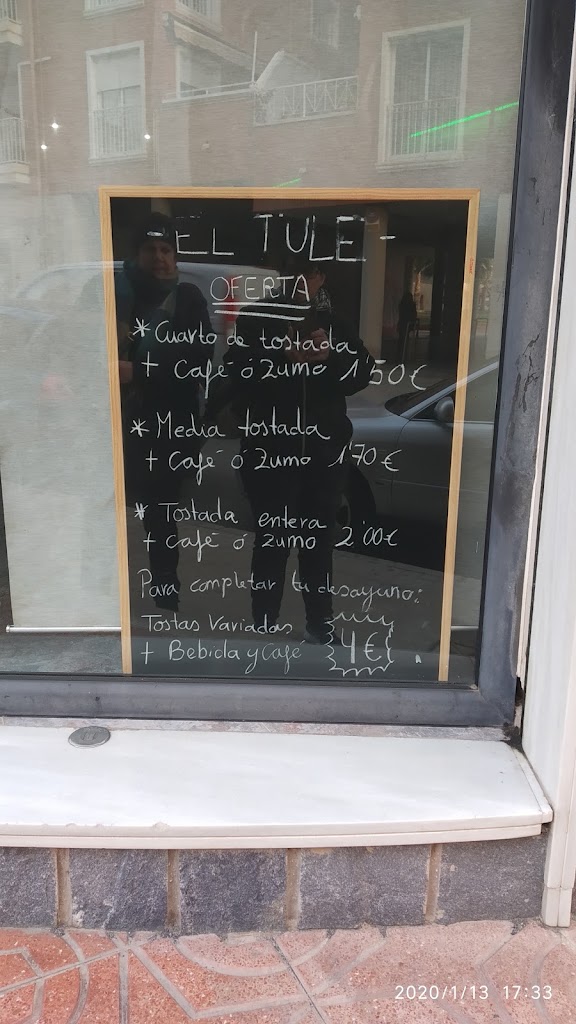 - EL TULE -
OFERTA
* Cuarto de tostada
+ Café ó Zumo 1'50€
* Media tostada
+ Café ó Zumo 1'70€
* Tostada entera
+ Café ó Zumo 2'00€
Para completar tu desayuno:
Tostas Variadas
+ Bebida y Café 4€
2020/1/13 17:33